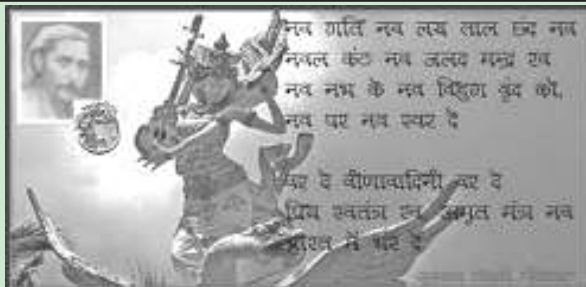 नव गति नव लय ताल छंद नव
नवल कंठ नव जलद मन्द्र रव
नव नभ के नव विहग वृंद को,
नव पर नव स्वर दे
वर दे वीणावादिनी वर दे
प्रिय स्वतंत्र रव अमृत मंत्र नव
भारत में भर दे